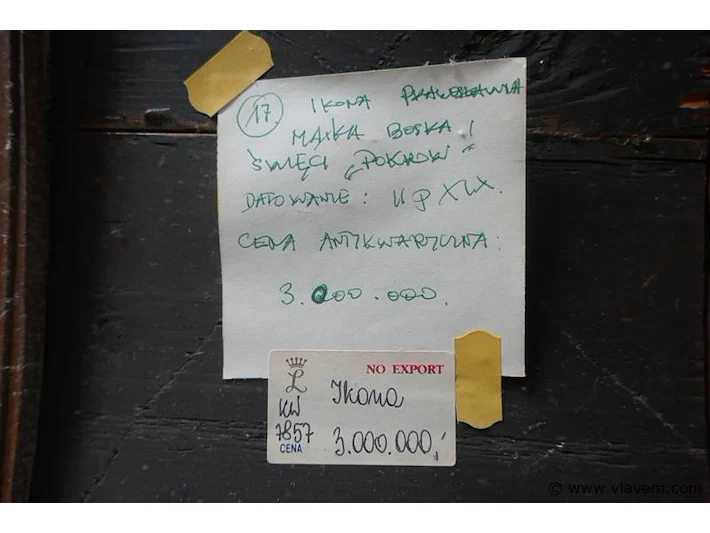 17
IKONA PRAWOSŁAWNA
MATKA BOSKA I
ŚWIĘCI „POKROW"
DATOWANIE: II P XIX.
CENA ANTYKWARYCZNA:
3.000.000.
NO EXPORT
L
KW
7857
CENA
Ikona
3.000.000,-
© www.vlavem.com